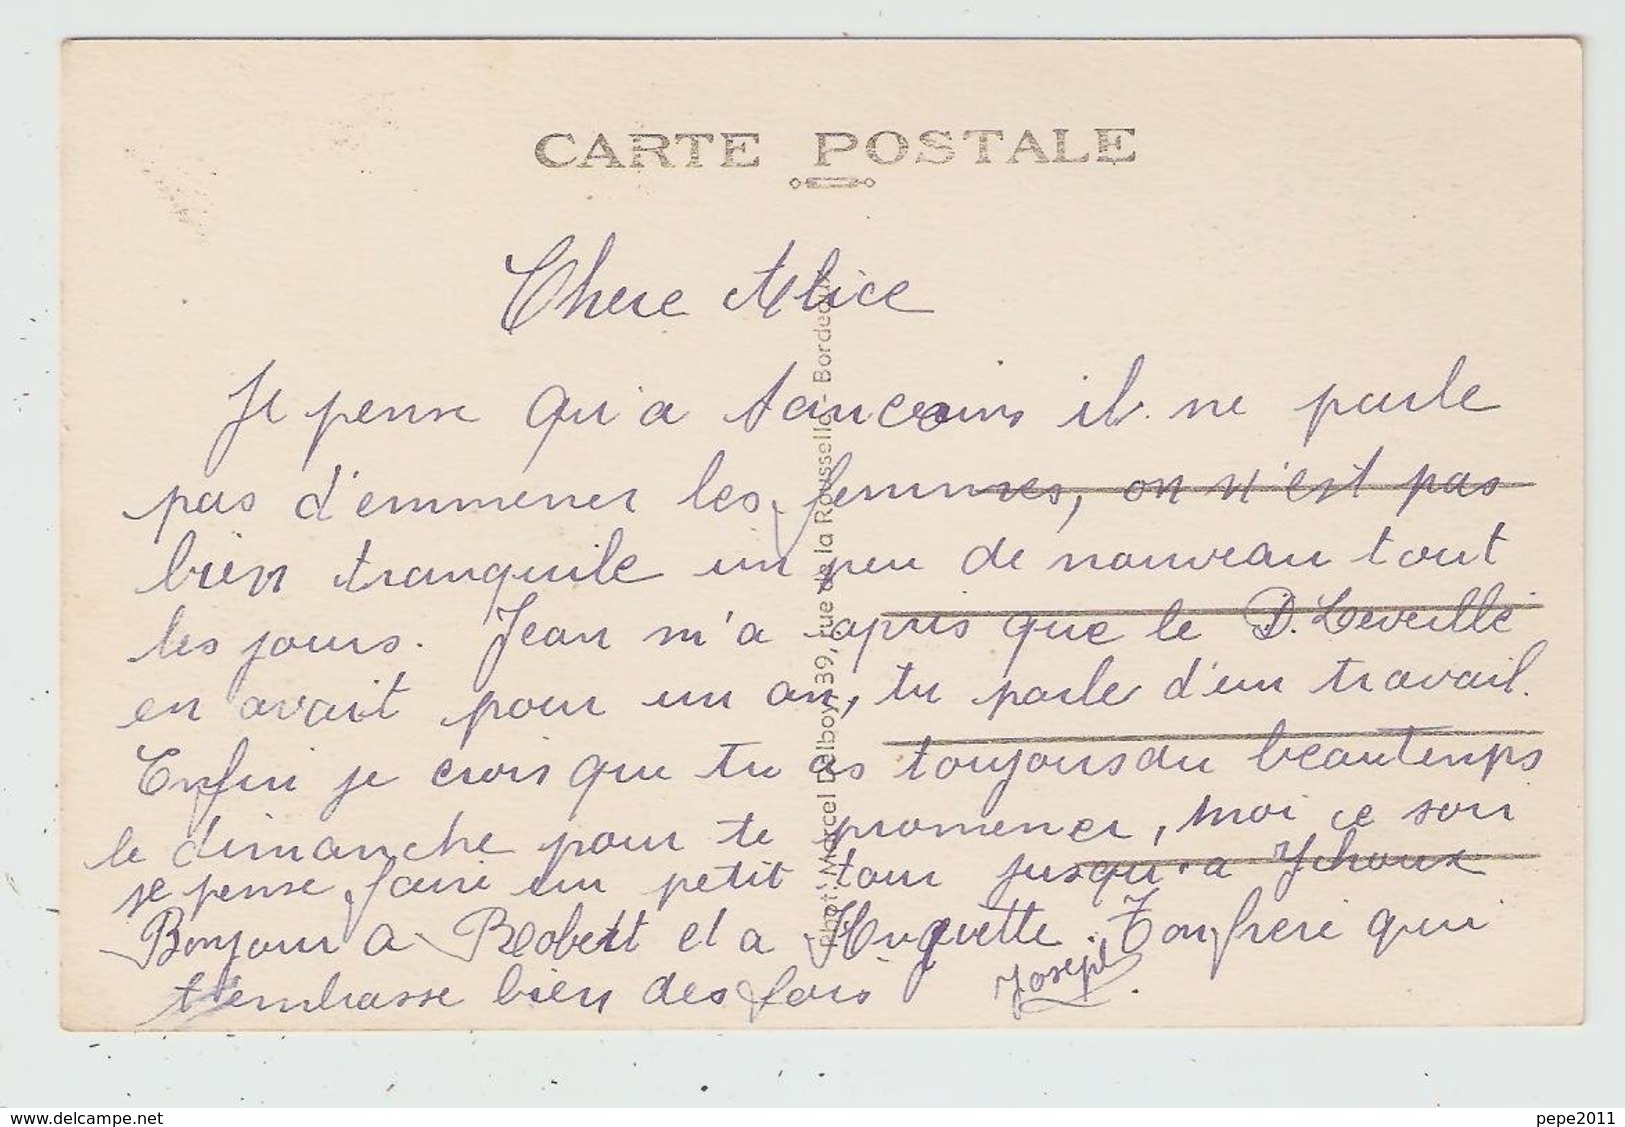 CARTE POSTALE
Chere Alice
Je pense qu'a il ne parle
pas d'emmener les femmes, on n'est pas
bien tranquile un peu de nouveau tout
les jours. Jean m'a apris que le D. Leveillé
en avait pour un an, tu parle d'un travail.
Enfin je crois que tu as toujours du beau temps
le dimanche pour te promener, moi ce soir
je pense faire un petit tour jusqu'a Ychoux
Bonjour a Robert et a Huguette. Ton frere qui
t'embrasse bien des fois Joseph.
Phot. Marcel Delboy, 39, rue de la Rousselle - Bordeaux
www.delcampe.net
pepe2011